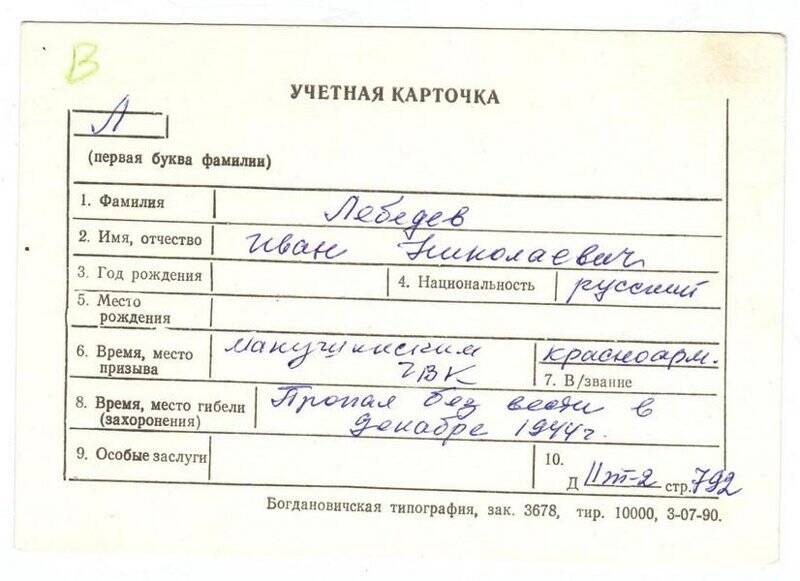 В
УЧЕТНАЯ КАРТОЧКА
Л
(первая буква фамилии)
1. Фамилия Лебедев
2. Имя, отчество Иван Николаевич
3. Год рождения 4. Национальность русский
5. Место
рождения
6. Время, место
призыва
ГВК
красноарм.
7. В/звание
8. Время, место гибели
(захоронения)
Пропал без вести в
декабре 1944г.
9. Особые заслуги
10.
Д IIт-2 стр. 792
Богдановичская типография, зак. 3678, тир. 10000, 3-07-90.